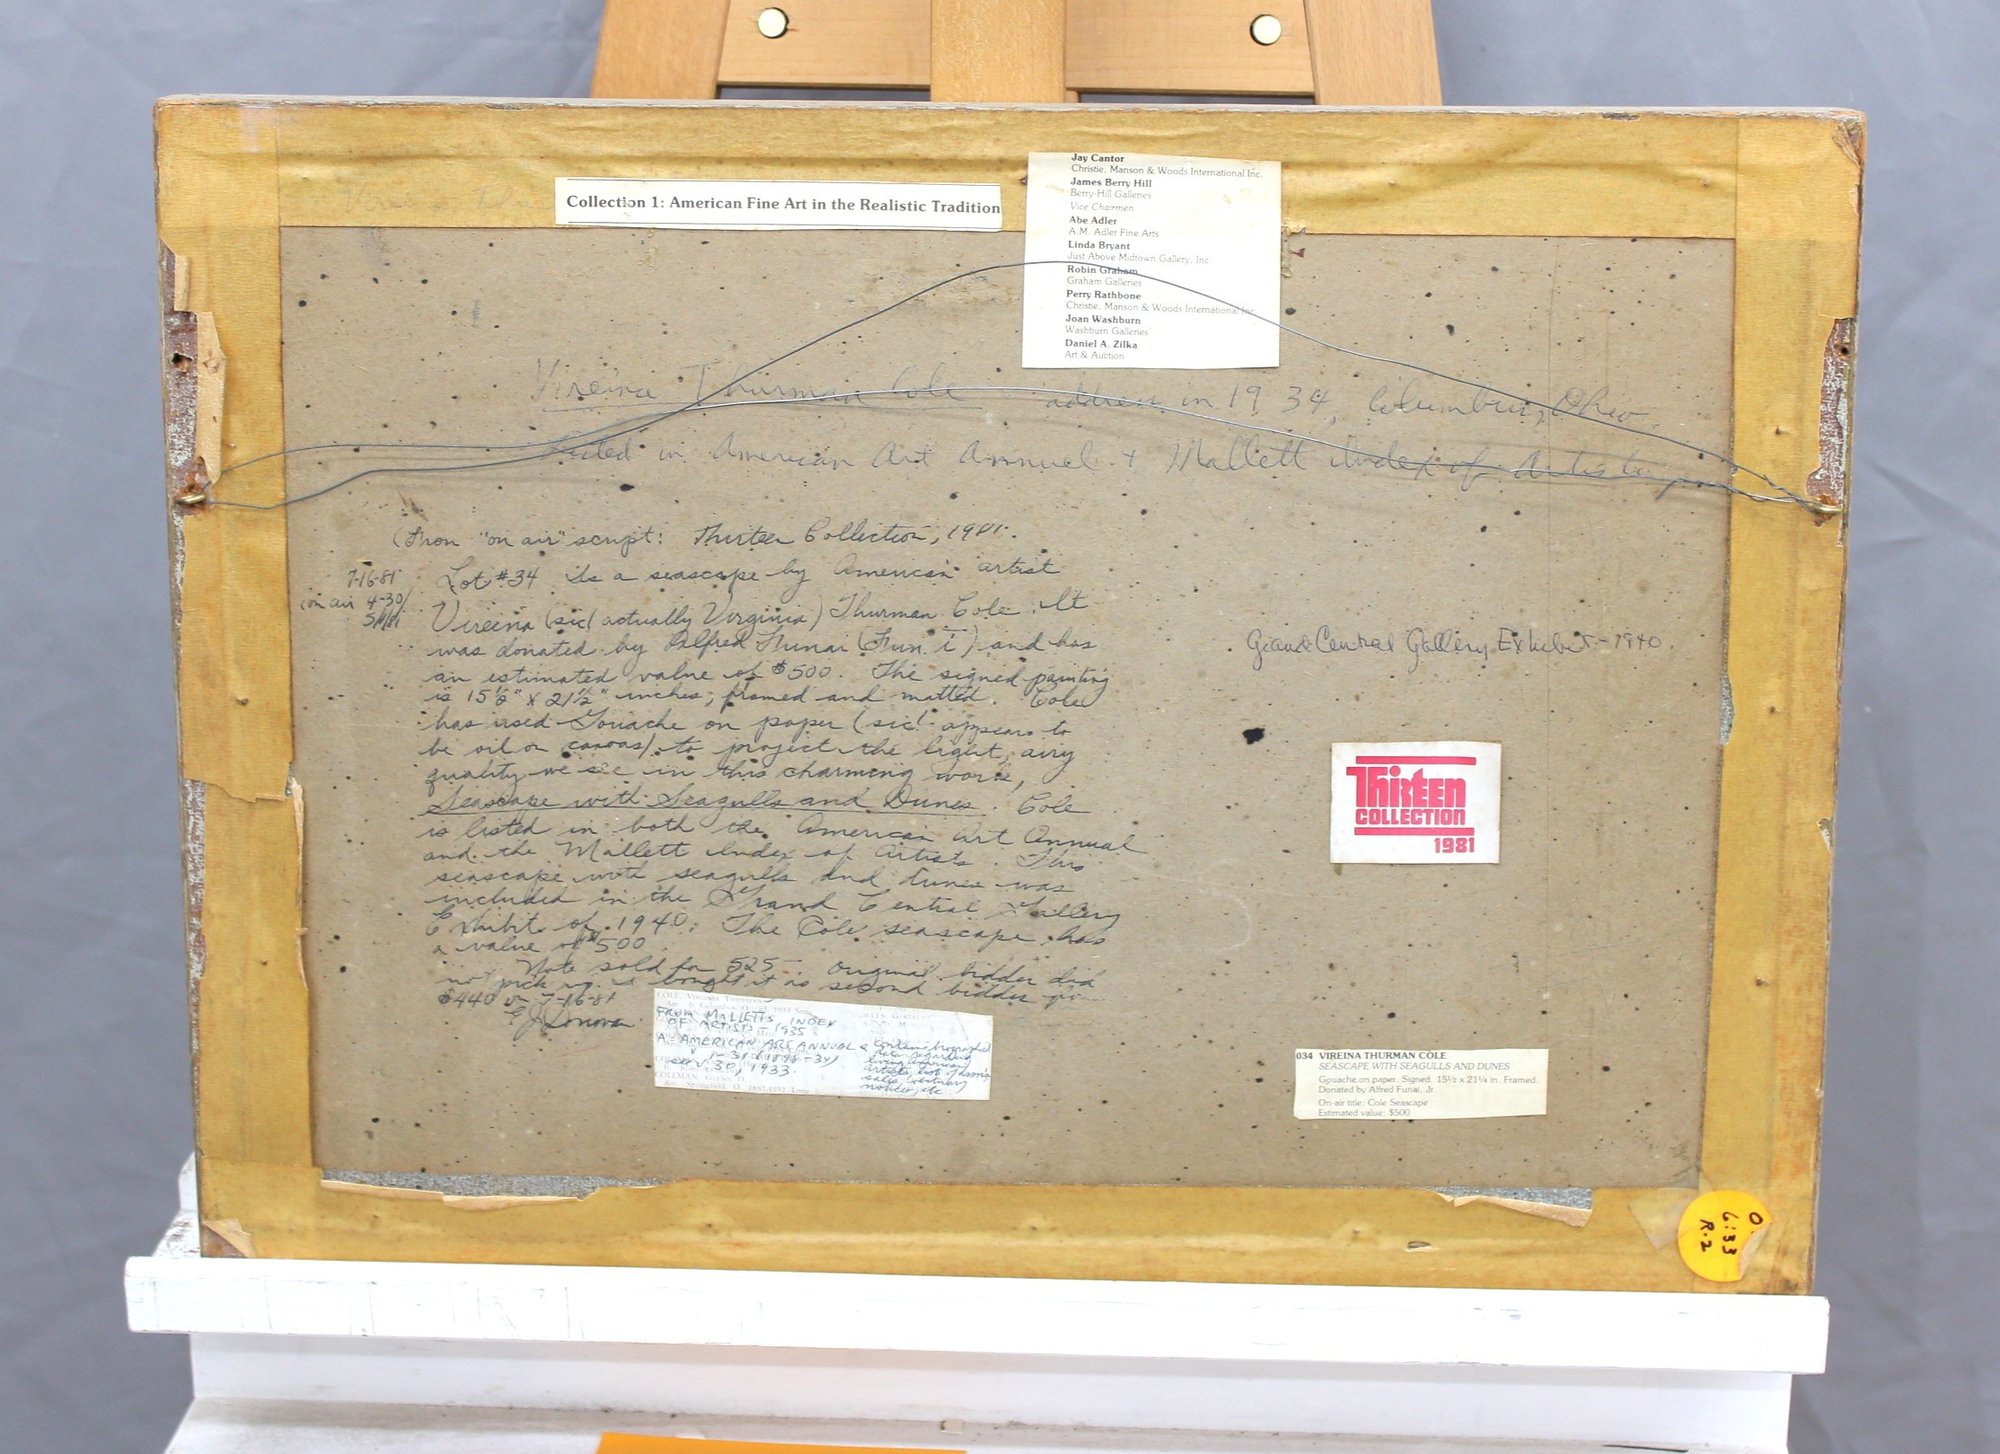 Collection 1: American Fine Art in the Realistic Tradition
Jay Cantor
Christie, Manson & Woods International Inc.
James Berry Hill
Berry-Hill Galleries
Vice Chairmen
Abe Adler
A.M. Adler Fine Arts
Linda Bryant
Just Above Midtown Gallery, Inc
Robin Graham
Graham Galleries
Perry Rathbone
Christie, Manson & Woods International Inc.
Joan Washburn
Washburn Galleries
Daniel A. Zilka
Art & Auction
Vireina Thurman Cole address in 1934, Columbus, Ohio
Listed in American Art Annual + Mallett Index of Artists
(From "on air" script: Thirteen Collection, 1981.
7-16-81
on air 4-30/
Lot #34 is a seascape by American artist
Vireina (sic! actually Virginia) Thurman Cole. It
was donated by Alfred Funai and has
an estimated value of $500. The signed painting
is 15½" x 21½" inches, framed and matted. Cole
has used Gouache on paper (sic! appears to
be oil on canvas) to project the light, airy
quality we see in this charming work,
Seascape with Seagulls and Dunes. Cole
is listed in both the American Art Annual
and the Mallett Index of Artists. This
seascape with seagulls and dunes was
included in the Grand Central Gallery
Exhibit of 1940. The Cole seascape has
a value of $500
Note sold for 525- Original bidder did
not pick up. I bought it as second bidder for
$440 on 7-16-81
E J Donovan
Grand Central Gallery Exhibit - 1940.
Thirteen
COLLECTION
1981
FROM MALLETTS INDEX
OF ARTISTS - 1935
AMERICAN ART ANNUAL
30, 1933
COLEMAN
Springfield, O.
034 VIREINA THURMAN COLE
SEASCAPE WITH SEAGULLS AND DUNES
Gouache on paper. Signed. 15½ x 21¼ in. Framed.
Donated by Alfred Funai, Jr.
On-air title: Cole Seascape
Estimated value: $500
O
6:33
R.2